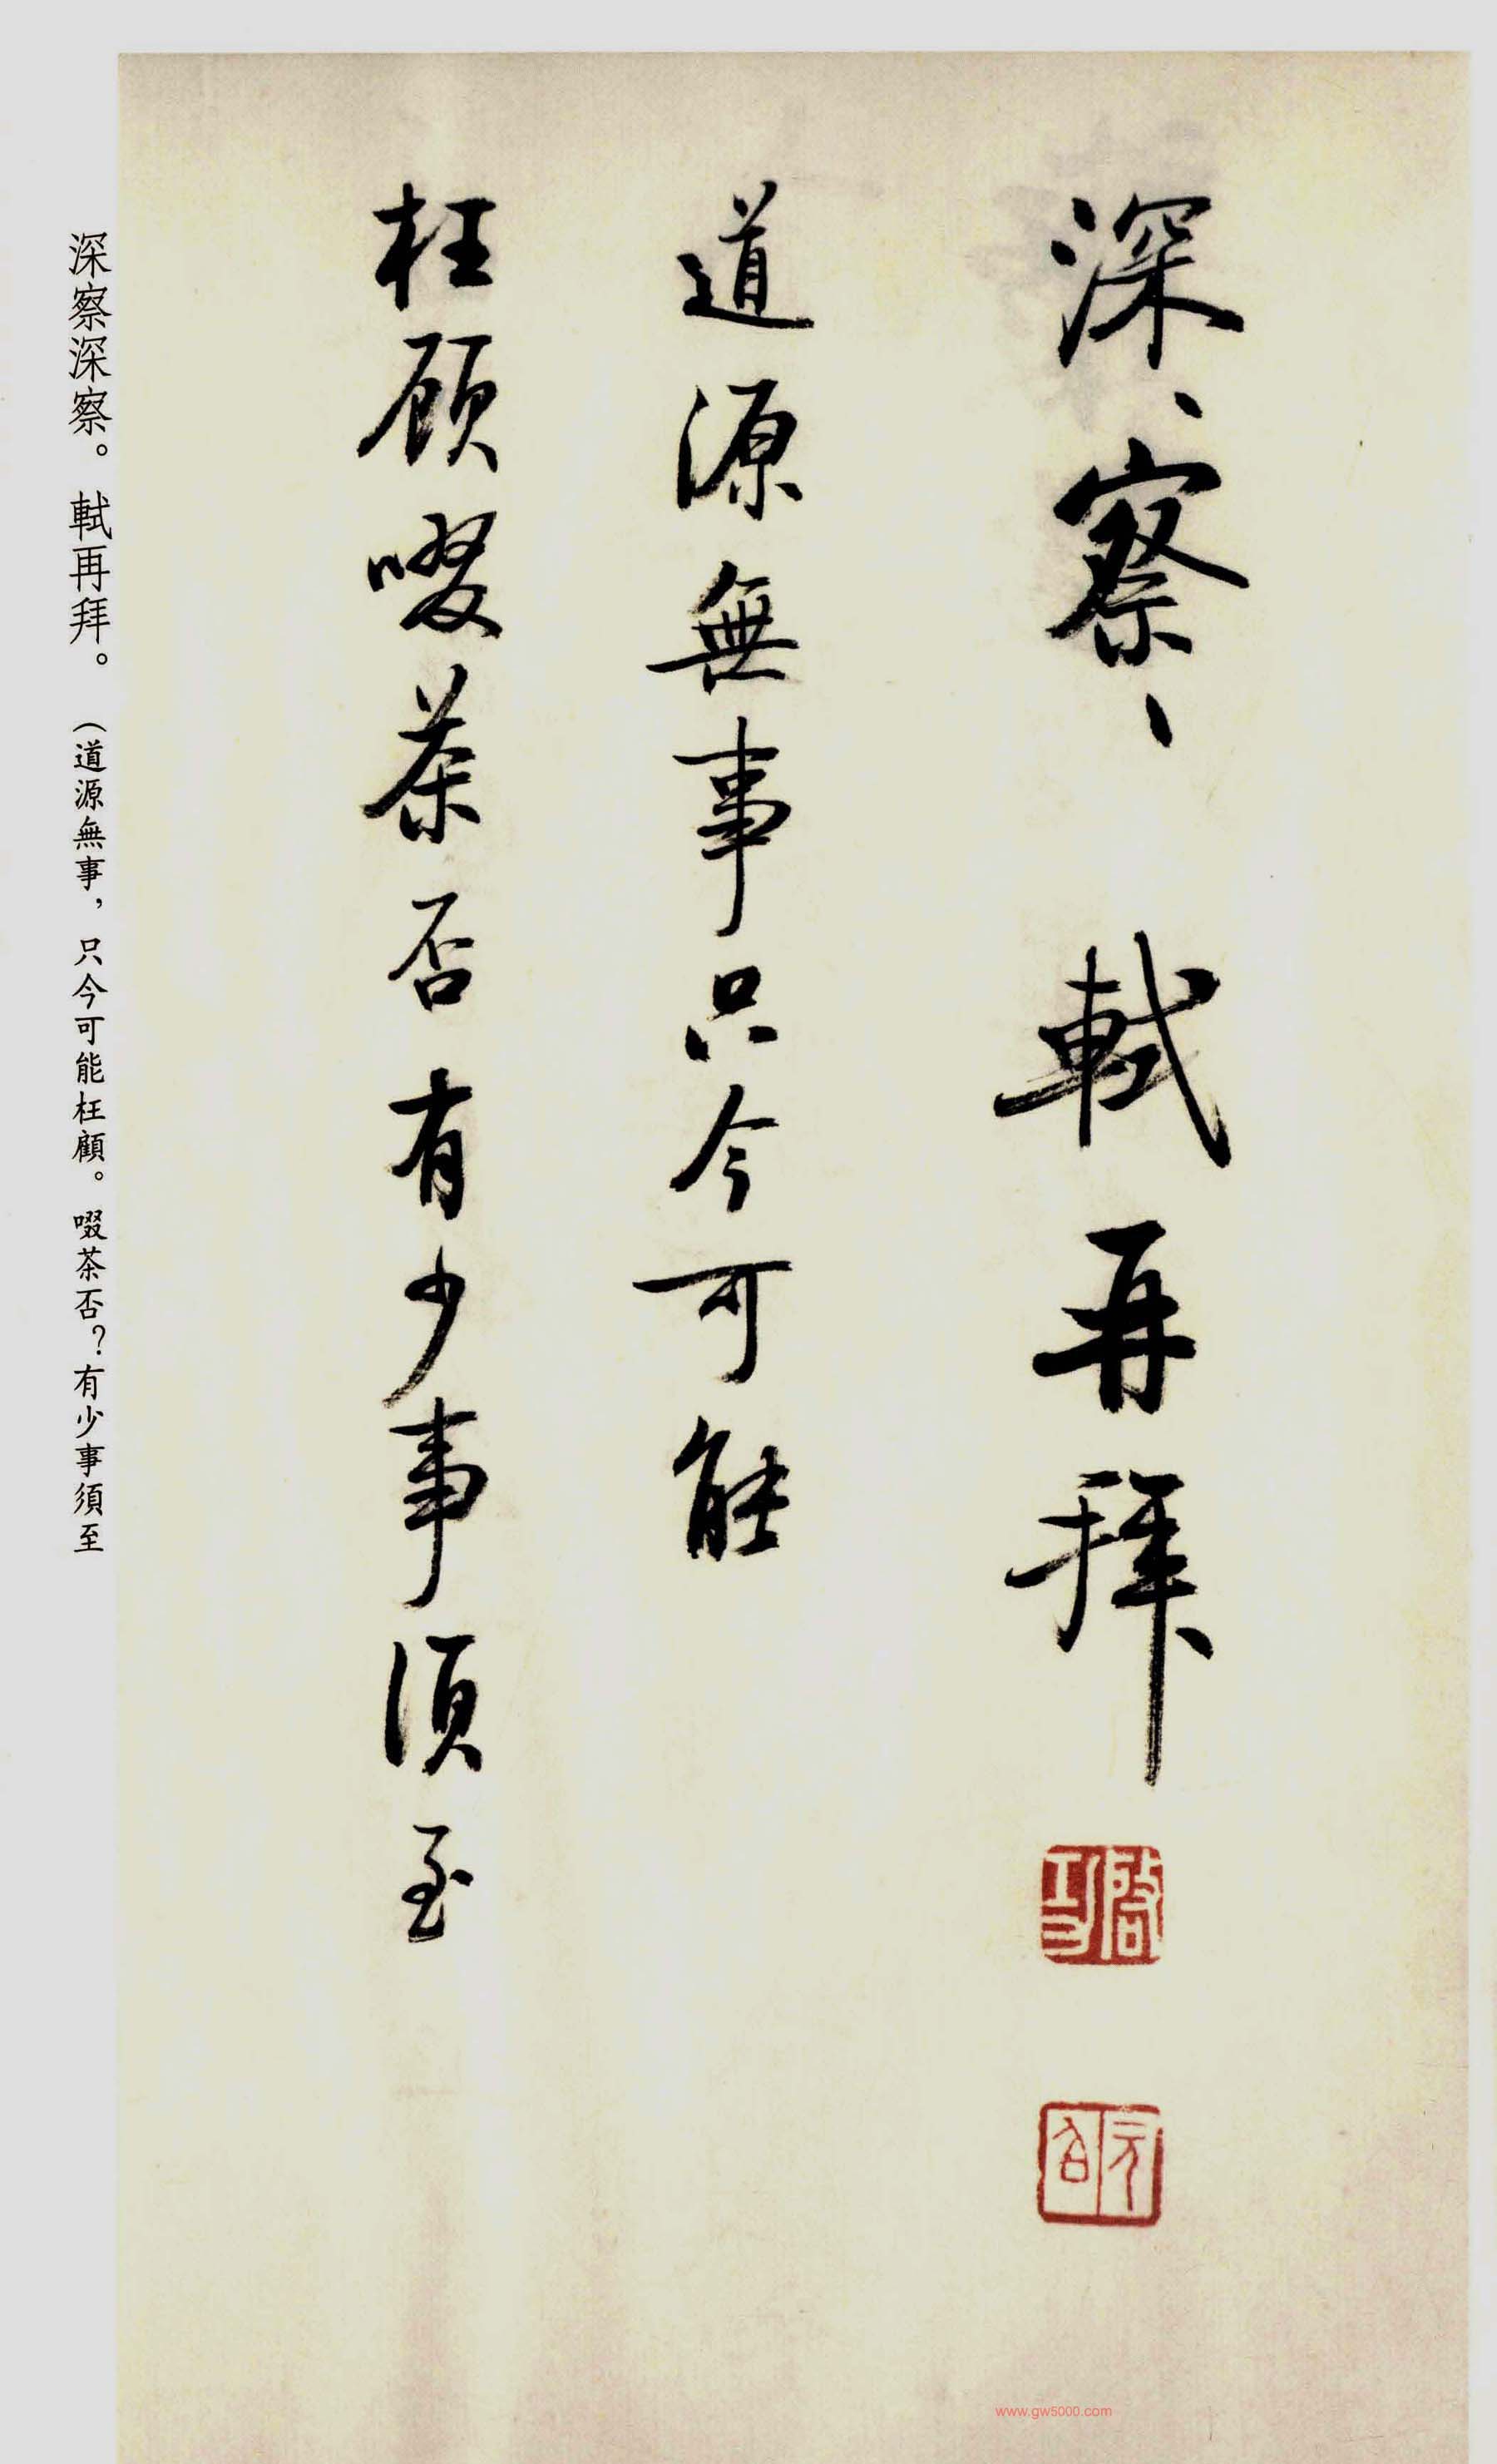 深、察、 軾再拜
啓功
元白
道源無事只今可能
枉顧啜茶否有少事須至
深察深察。軾再拜。（道源無事，只今可能枉顧。啜茶否？有少事須至
www.gw5000.com